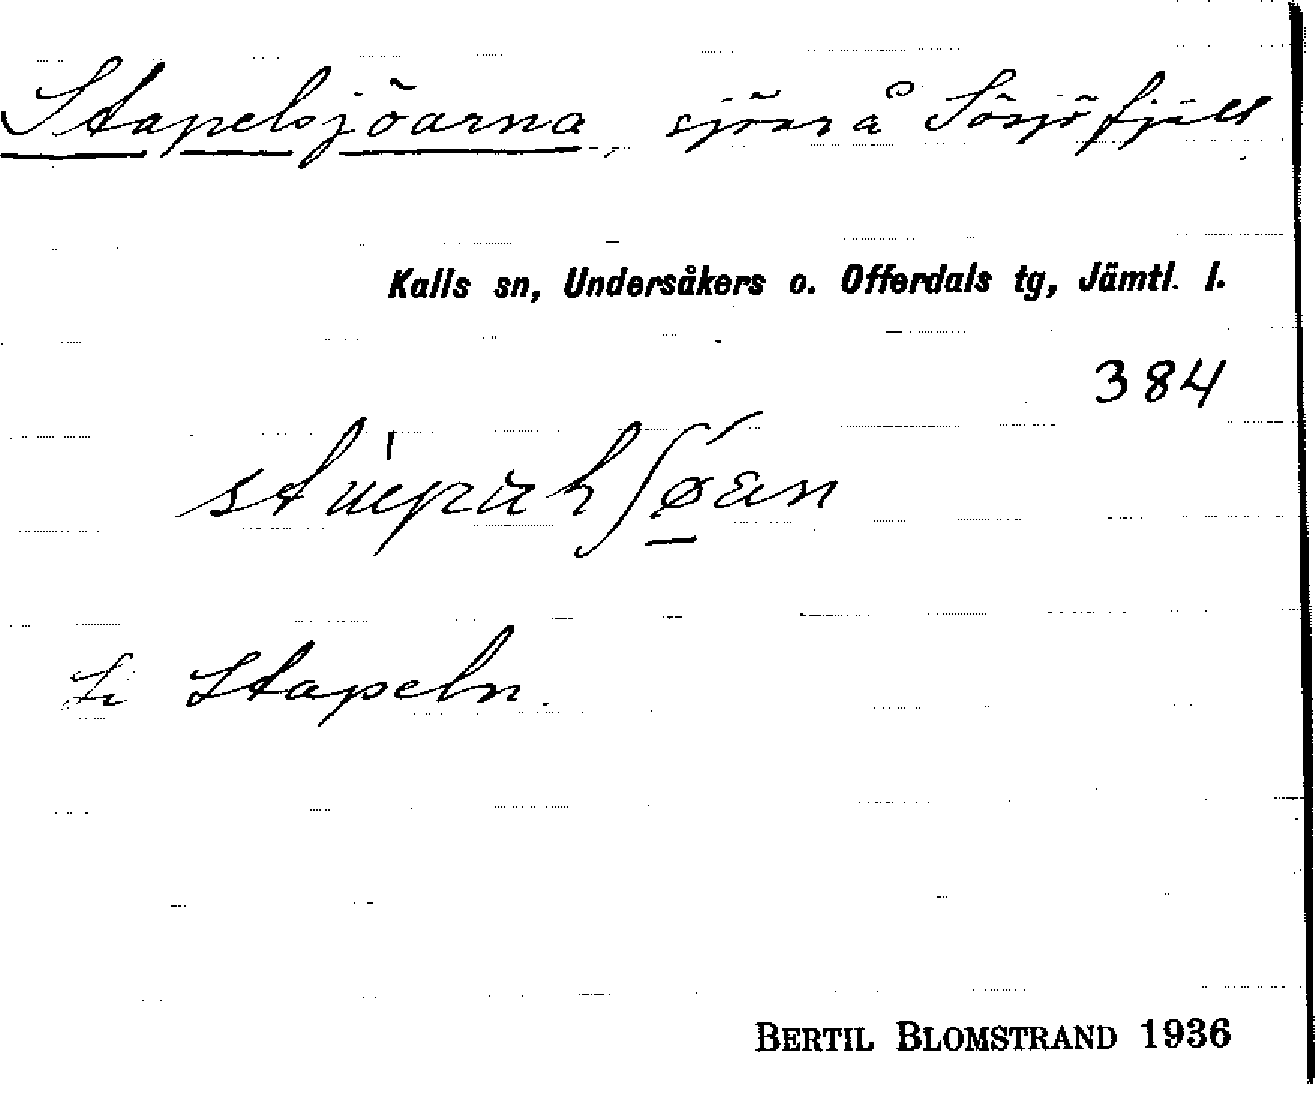 Stapelsjöarna, sjöar å Sösjöfjäll
Kalls sn, Undersåkers o. Offerdals tg, Jämtl. l.
384
Se Stapeln.
BERTIL BLOMSTRAND 1936